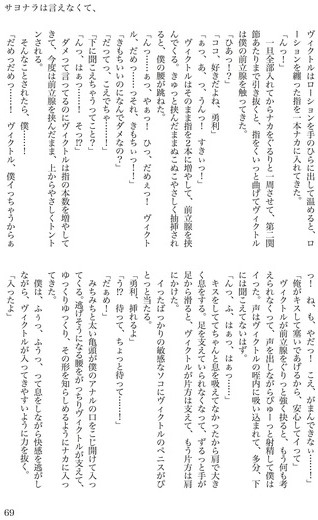 サヨナラは言えなくて、
ヴィクトルはローションを手のひらに出して温めると、ロ
ーションを纏った指を一本ナカに入れてきた。
「んっ！」
一旦全部入れてからナカをぐるりと一周させて、第二関
節あたりまで引き抜くと、指をくいっと曲げてヴィクトル
は僕の前立腺を触ってきた。
「ひあっ？」
「ココ、好きだよね、勇利」
「ぁっ、あ、っ、うんっ！　すきぃっ！」
ヴィクトルはそのまま指を2本に増やして、前立腺を挟
んでくる。きゅっと挟んだままぬこぬこやさしく抽挿され
ると、僕の腰が跳ねた。
「んっ……っ、やぁっ！　ひっ、だめぇっ！　ヴィクト
ル、だめっ……っそれ、きもちぃっ！！」
「きもちいいのになんでダメなの？」
「だってっ、こえでちゃ……！」
「下に聞こえちゃうってこと？」
「んっ、はぁっ……っ！　そっ!?」
ダメって言ってるのにヴィクトルは指の本数を増やして
きて、今度は前立腺を挟んだまま、上からやさしくトント
ンされる。
そんなことされたら、僕……！
「だめっだめっ……！　ヴィクトル、僕イっちゃうからぁ
っ！　ね、も、やだっ！　こえ、がまんできなぃ……！」
「俺がキスして塞いであげるから、安心してイって」
ヴィクトルが前立腺をぐりっと強く抉ると、もう何も考
えられなくって、声を出しながらぴゅーっと射精して僕は
イった。声はヴィクトルの咥内に吸い込まれて、多分、下
には聞こえてないはず。
「んっっ、ふ、はぁっ、はぁっ…」
キスをしててちゃんと息を吸えてなかったから肩で大き
く息をする。足を支えていられなくなって、ずるっと手が
足から滑ると、ヴィクトルが片方は支えて、もう片方は肩
にかけた。
イったばっかりの敏感なソコにヴィクトルのペニスがぴ
とっと当たる。
「勇利、挿れるよ」
「う!?　待って、ちょっと待って……！」
「だぁめ！」
みちみちと太い亀頭が僕のアナルの口をこじ開けて入っ
てくる。逃げそうになる腰をがっちりヴィクトルが支えて、
ゆっくりゆっくり、その形を知らしめるようにナカに入っ
てきた。
僕は、ふぅっ、ふうっ、って息をしながら快感を逃がし
ながら、ヴィクトルが入ってきやすいように力を抜く。
「入ったよ」
69